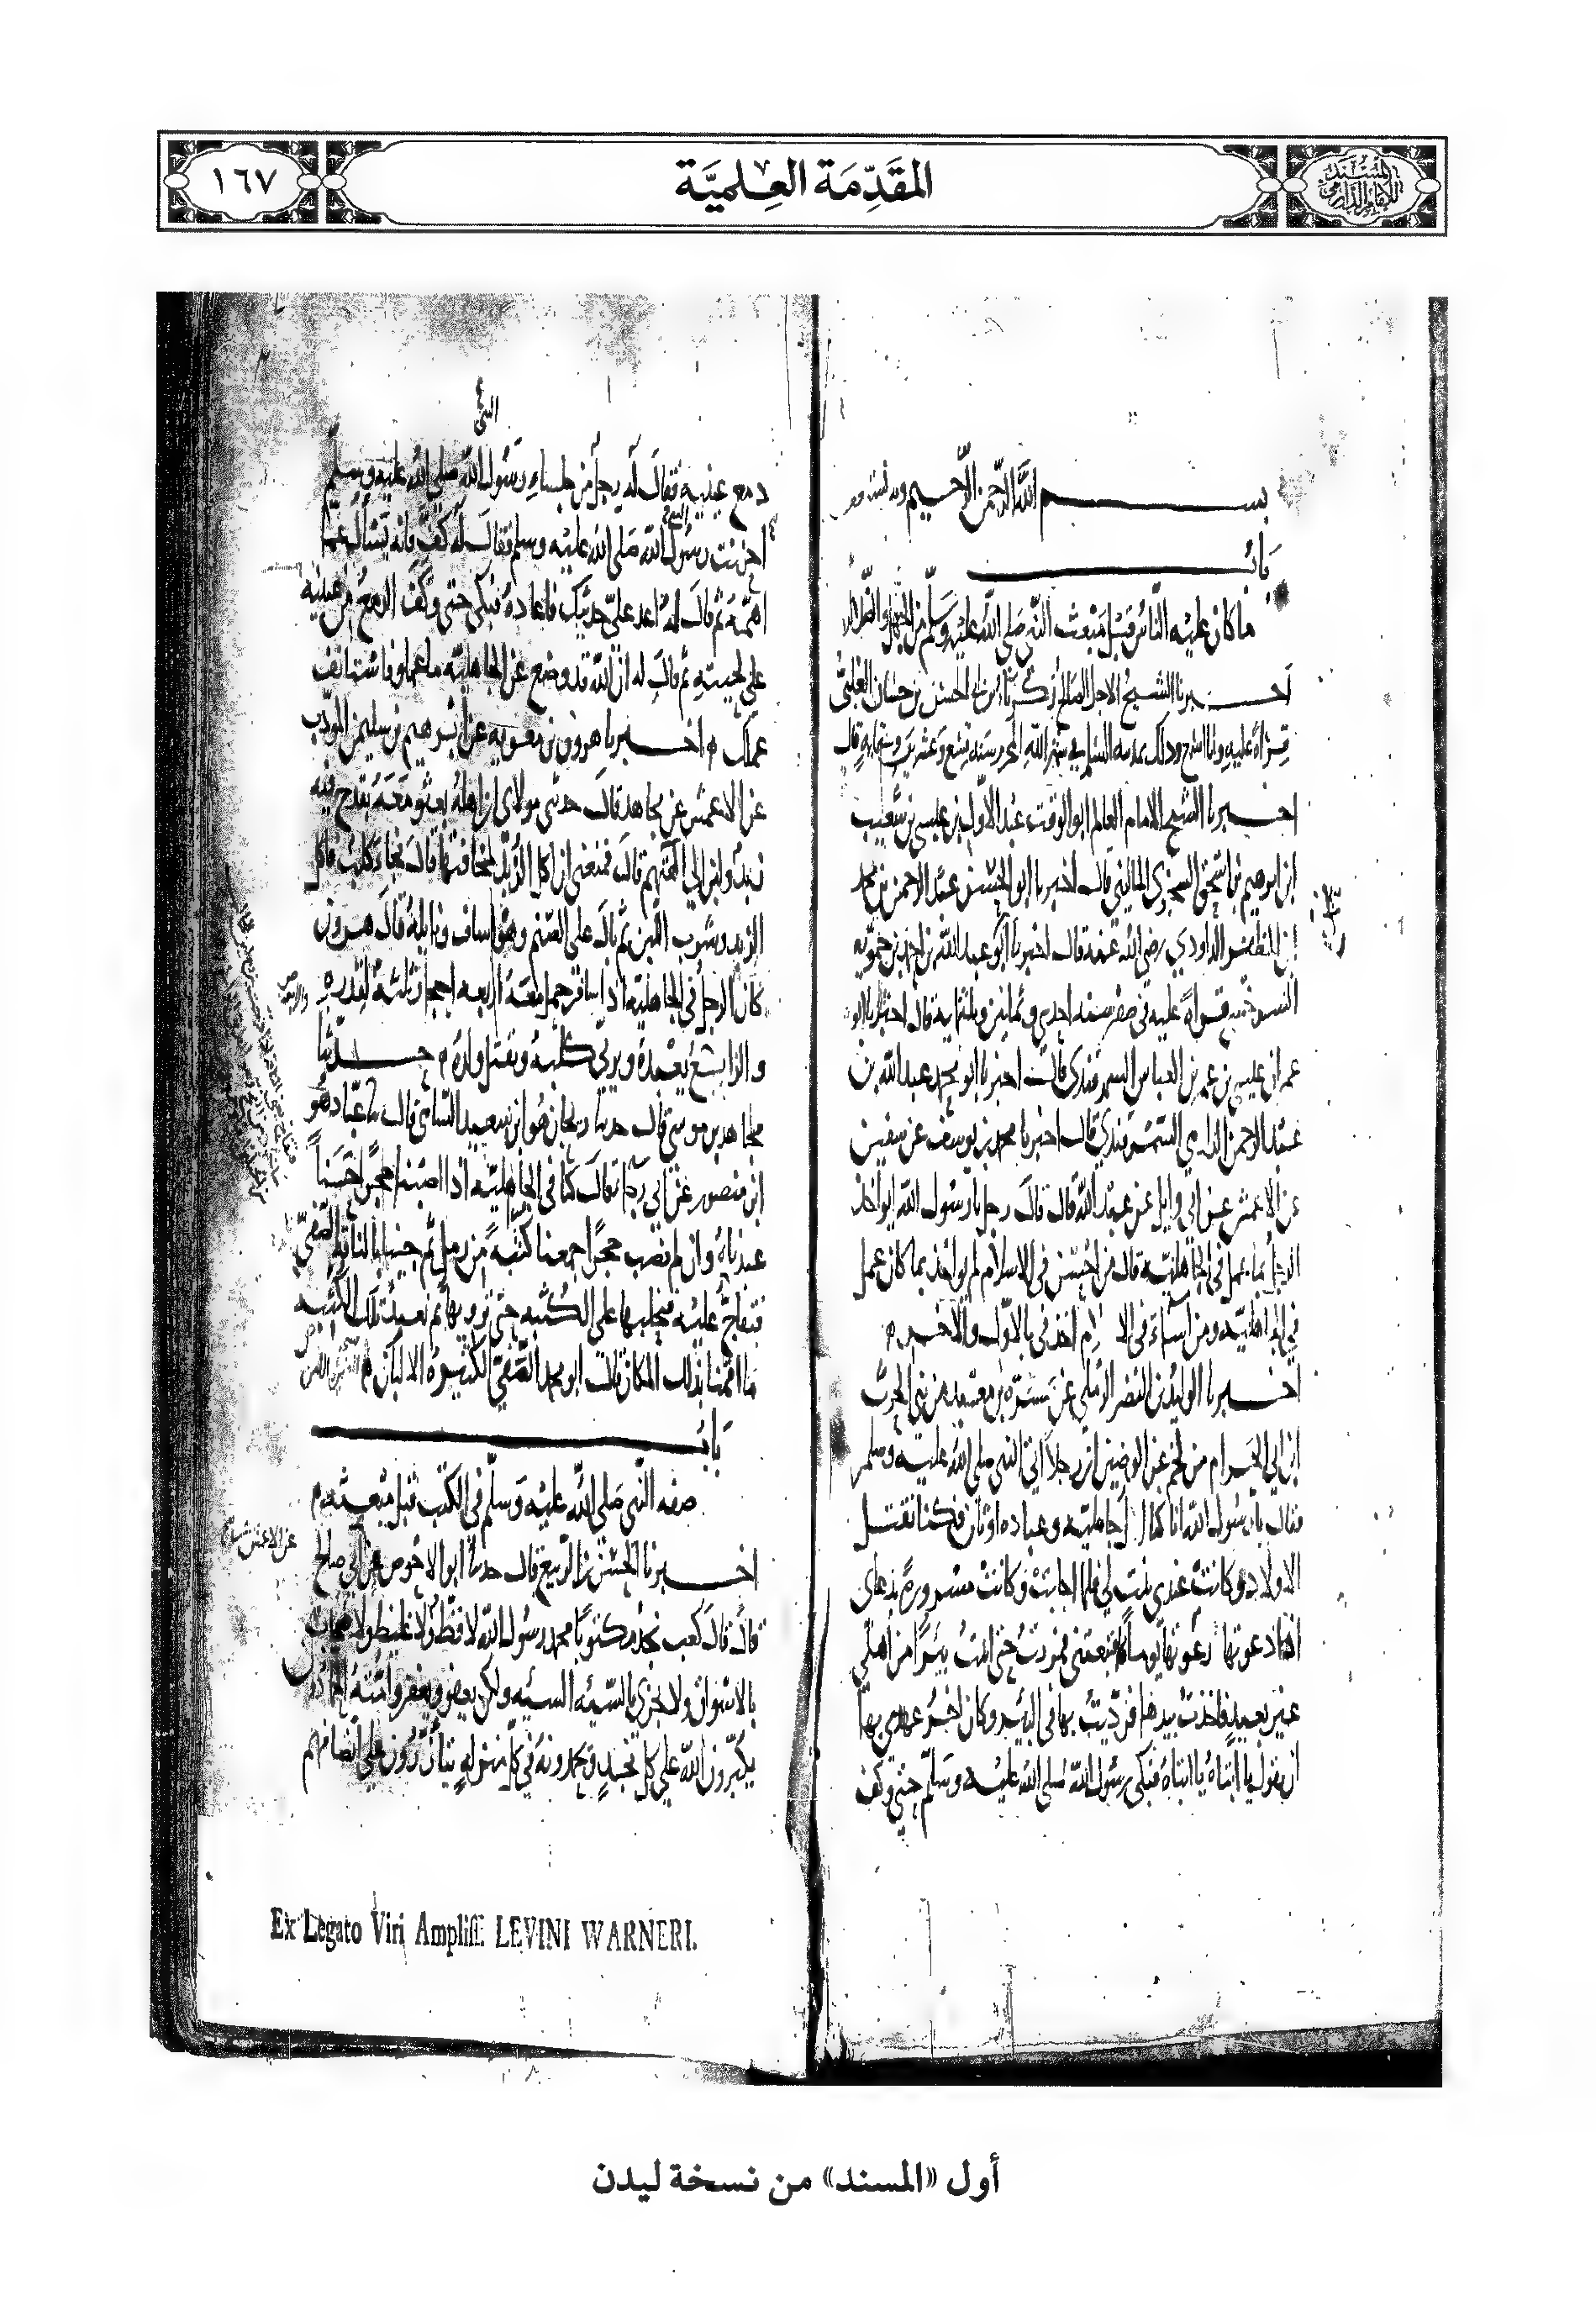 المسند للإمام الدارمي
المقَدِّمَة العِلميَّة
١٦٧
بسم الله الرحمن الرحيم
باب
ما كان عليه الناس قبل مبعث النبي صلى الله عليه وسلم من الجهل والضلالة
اخبرنا الشيخ الاجل الصالح زكريا بن علي الحسن بن حسان العلبي
قراة عليه وانا اسمع وذلك بمدينة السلام في شهر الله المحرم سنة تسع وعشرين وستماية قال
اخبرنا الشيخ الامام العالم ابو الوقت عبد الاول بن عيسى بن شعيب
ابن ابرهيم بن اسحق السجزي الماليني قال اخبرنا ابو الحسن عبد الرحمن بن محمد
ابن المظفر الداودي رضي الله عنه قال اخبرنا ابو عبد الله بن احمد بن حمويه
السرخسي قراة عليه في صفر سنه احدى وثمانين وثلثماية قال اخبرنا ابو
عمران عيسى بن عمر بن العباس السمرقندي قال اخبرنا ابو محمد عبد الله بن
عبد الرحمن الدارمي السمرقندي قال اخبرنا محمد بن يوسف عن سفين
عن الاعمش عن ابي وايل عن عبد الله قال قال رجل يا رسول الله ايواخذ
الرجل بما عمل في الجاهلية قال من احسن في الاسلام لم يواخذ بما كان عمل
في الجاهلية ومن اساء في الا ام اخذ في بالاول والاخر
اخبرنا الوليد بن النضر الرملي عن مسرة بن معبد من بني الحرث
ابن ابي الحرام من لخم عن الوضين ان رجلا اتى النبي صلى الله عليه وسلم
فقال يا رسول الله انا كنا اجاهلية وعباده اوثان فكنا نقتل
الاولاد وكانت عندي بنت لي فلما اجابت وكانت مسرورة بدعاي
اذا دعوتها دعوتها يوما فاتبعتني فمررت حتى اتيت بيرا من اهلي
غير بعيد فاخذت بيدها فرديت بها في البير وكان اخر عهدي بها
ان تقول يا ابتاه يا ابتاه فبكى رسول الله صلى الله عليه وسلم حتى وكف
النبي
دمع عينيه فقال له رجل من جلساء رسول الله صلى الله عليه وسلم
احزنت رسول الله صلى الله عليه وسلم فقال له كف فانه يسأل عما
اهمه ثم قال له اعد علي حديثك فاعاده فبكى حتى وكف الدمع من عينيه
على لحيته ثم قال له ان الله قد وضع عن الجاهلية ما عملوا فاستانف
عملك اخبرنا هرون بن معوية عن ابرهيم بن سليمن المودب
عن الاعمش عن مجاهد قال حدثني مولاي ان اهله بعثو معه بقدح فيه
زبد ولبن الى الهتهم قال فمنعني ان اكل الزبد لمخافتها قال فجا كلب فاكل
الزبد وشرب اللبن ثم بال على الصنم وهو اساف ونايلة قال هرون
كان الرجل في الجاهلية اذا سافر حمل معه اربعه احجار ثلثة لقدره
والرابع يعبده ويربي كلبه ويقتل ولده حدثنا
مجاهد بن موسى قال حدثنا ريحان هو ابن سعيد السامي قال ثنا عباد هو
ابن منصور عن ابي رجا قال كنا في الجاهلية اذا اصبنا حجرا حسنا
عبدناه وان لم نصب حجرا جمعنا كثبة من رمل ثم جينا بالناقة الصفي
فتفاج عليه فنحلبها على الكثبه حتى نرويها ثم نعبد تلك الكثبة
ما اقمنا بذلك المكان قال ابو محمد الصفي الكثيرة الالبان
باب
صفه النبي صلى الله عليه وسلم في الكتب قبل مبعثه
اخبرنا الحسن بن الربيع قال حدثنا ابو الاحوص عن ابي صالح
عن الاعمش
قال قال كعب نجده مكتوبا محمد رسول الله لا فظ ولا غليظ ولا صخاب
بالاسواق ولا يجزي بالسيئة السيئه ولكن يعفو ويغفر وامته الحمادون
يكبرون الله على كل نجد ويحمدونه في كل منزله يتأزرون على انصافهم
Ex Legato Viri Ampliss. LEVINI WARNERI.
أول «المسند» من نسخة ليدن